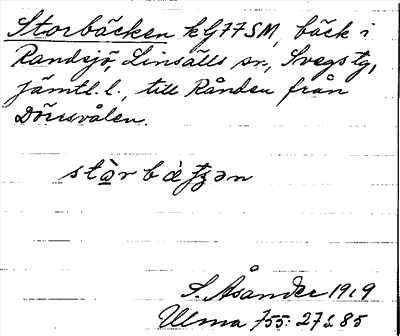 Storbäcken k G77SM, bäck i
Randsjö, Linsälls sn., Svegs tg,
Jämtl. l., till Rånden från
Dörrsvålen.
S. Åsander 1919
Ulma 755: 27 s. 85